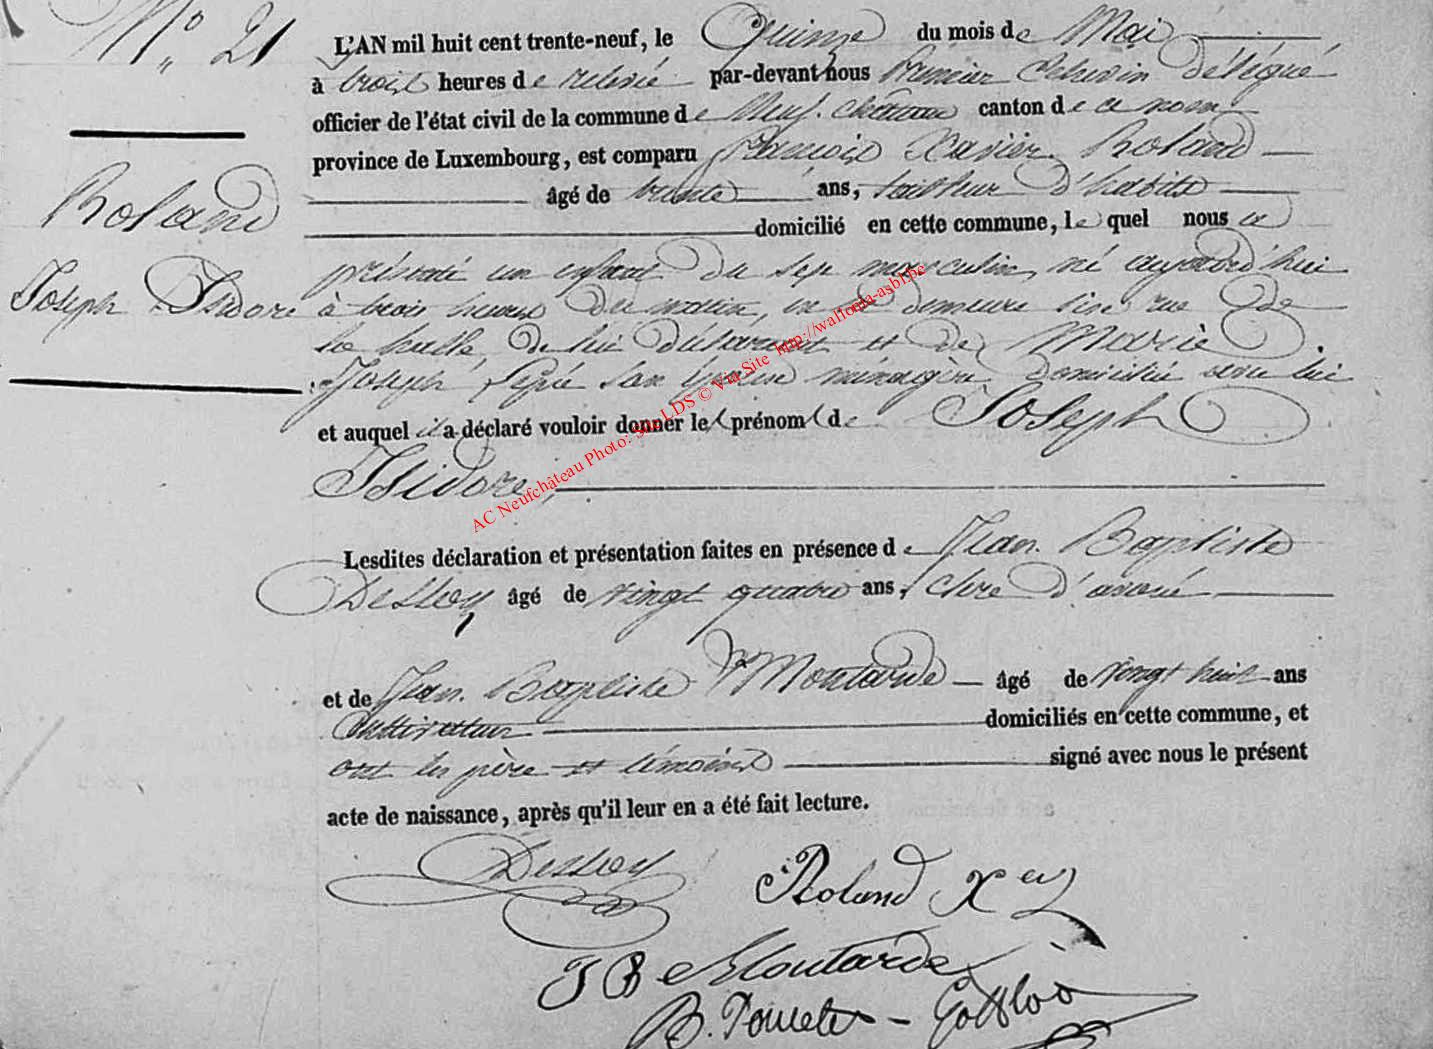 N° 21
L'AN mil huit cent trente-neuf, le Quinze du mois de Mai
à trois heures de relevée par-devant nous Premier Echevin délégué
officier de l'état civil de la commune de Neufchâteau canton de ce nom
province de Luxembourg, est comparu François Xavier Roland
âgé de trente ans, tailleur d'habits
domicilié en cette commune, lequel nous a
Roland
Joseph Isidore
présenté un enfant du sexe masculin, né aujourd'hui
à trois heures du matin, en sa demeure sise rue de
la halle, de lui déclarant et de Marie
Joseph son épouse ménagère, domiciliée avec lui
et auquel il a déclaré vouloir donner les prénoms de Joseph
Isidore,
Lesdites déclaration et présentation faites en présence de Jean Baptiste
Dessoy âgé de vingt quatre ans, clerc d'avoué
et de Jean Baptiste Moutarde âgé de vingt huit ans
Cultivateur domiciliés en cette commune, et
ont les père et témoins signé avec nous le présent
acte de naissance, après qu'il leur en a été fait lecture.
Dessoy
Roland Xer
J B Moutarde
B. Poncelet -
AC Neufchâteau Photo: Sur LDS © Via Site http://wallonia-asbl.be